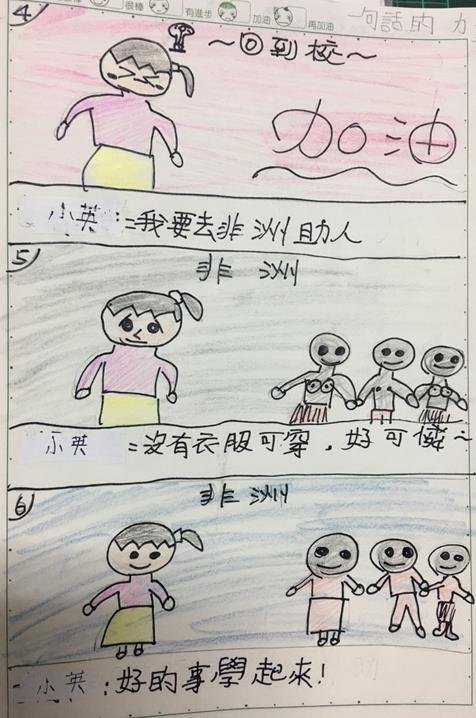 很棒 有進步 加油 再加油
句話的力
4
~回到校~
加油
小英:=我要去非洲助人
5
非洲
小英=沒有衣服可穿,好可憐~
6
非洲
小英:好的事學起來!